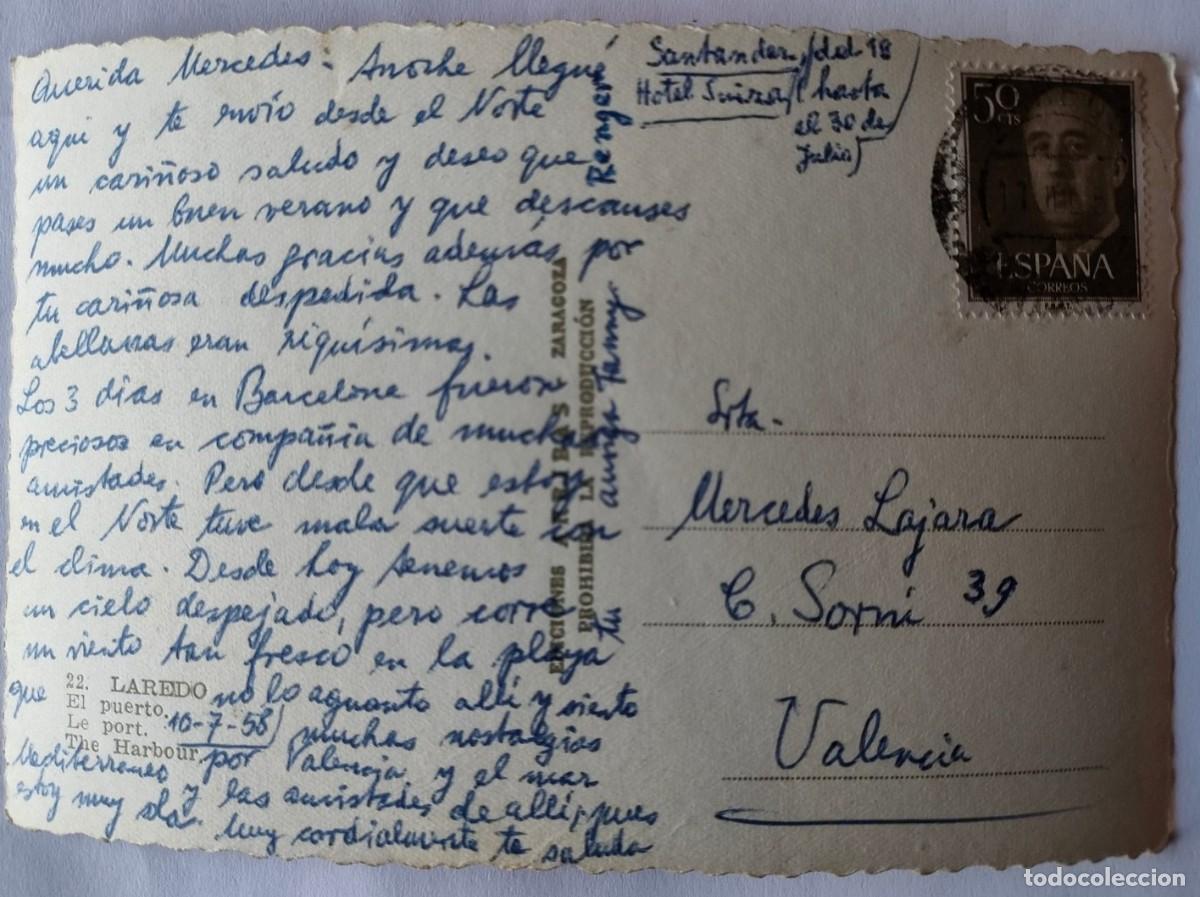 Querida Mercedes - Anoche llegué
aqui y te envío desde el Norte
un cariñoso saludo y deseo que
pases un buen verano y que descanses
mucho. Muchas gracias además por
tu cariñosa despedida. Las
abellanas eran riquísimas.
Los 3 dias en Barcelona fueron
preciosos en compañia de muchas
amistades. Pero desde que estoy
en el Norte tuve mala suerte con
el clima. Desde hoy tenemos
un cielo despejado, pero corre
un viento tan fresco en la playa
que no lo aguanto allí y siento
muchas nostalgias
por Valencia y el mar
Mediterraneo y las amistades de allí, pues
estoy muy sola. Muy cordialmente te saluda
tu amiga Fanny
22. LAREDO
El puerto.
Le port.
The Harbour.
10-7-58
EDICIONES ARRIBAS ZARAGOZA
PROHIBIDA LA REPRODUCCIÓN
Santander, (del 18
Hotel Suizo, hasta
el 30 de
Julio)
50
CTS
ESPAÑA
CORREOS
Srta.
Mercedes Lajara
C. Sorní 39
Valencia
todocoleccion